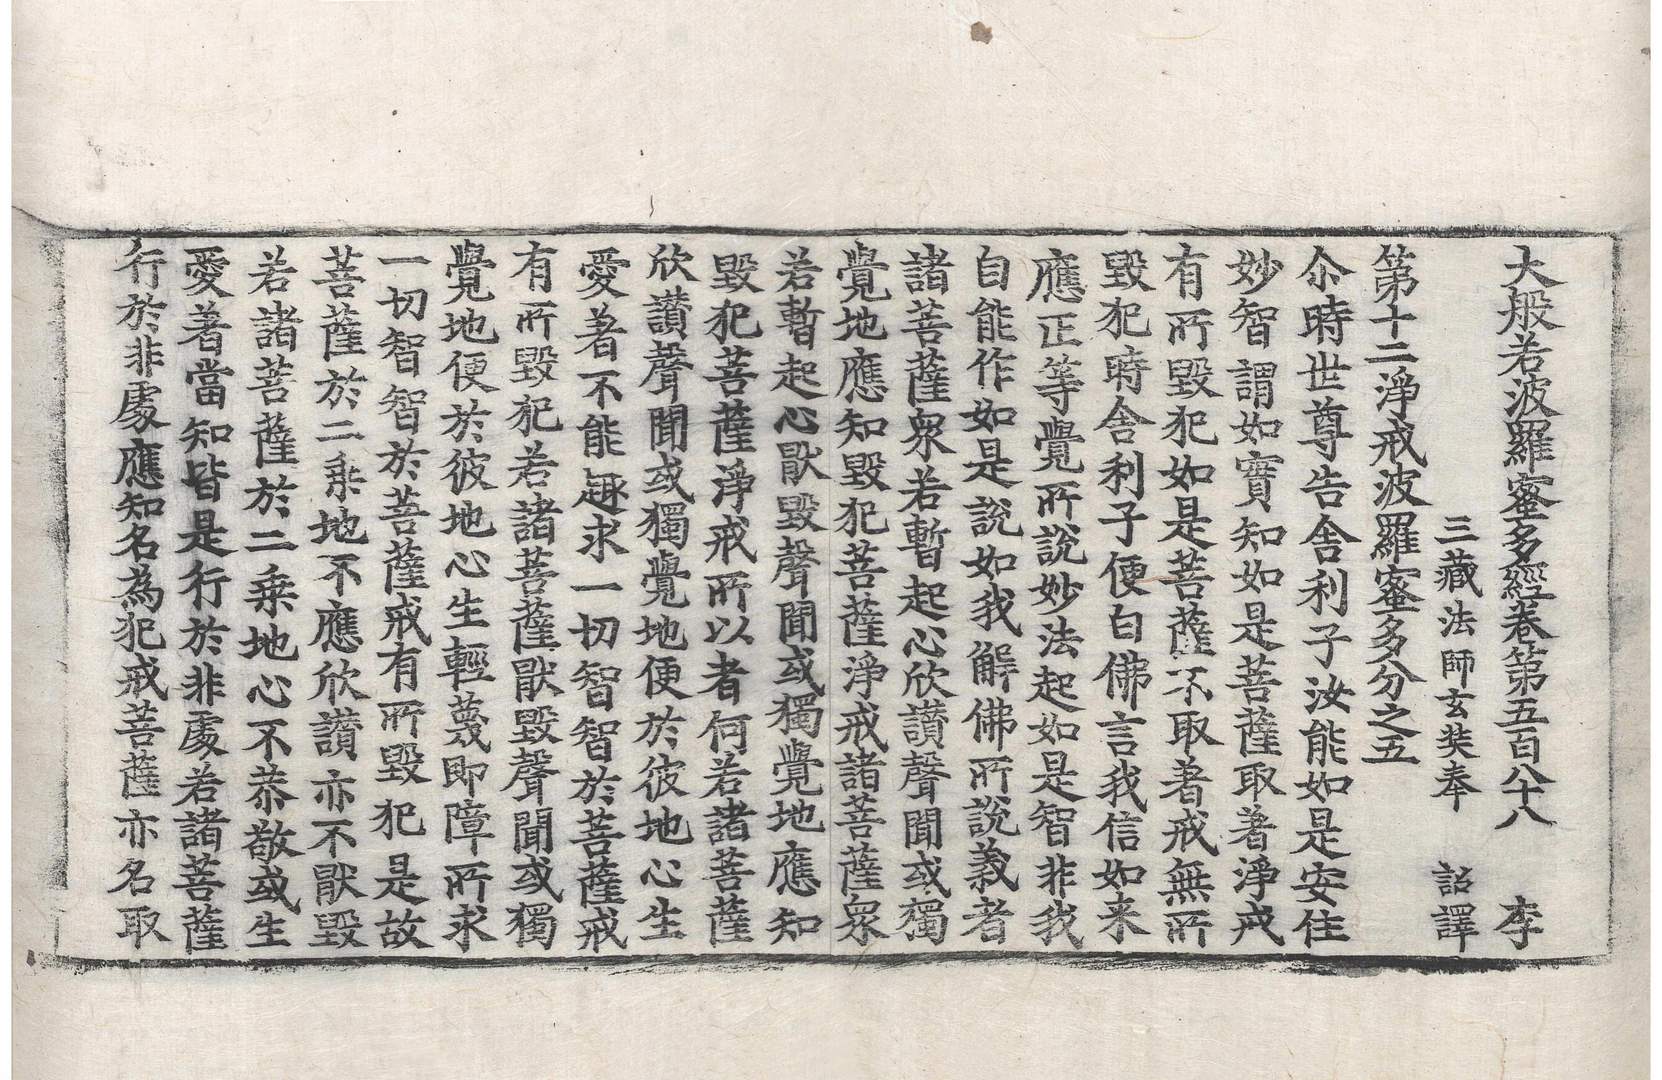 大般若波羅蜜多經卷第五百八十八　李
三藏法師玄奘奉　詔譯
第十二淨戒波羅蜜多分之五
尒時世尊告舍利子汝能如是安住
妙智謂如實知如是菩薩取著淨戒
有所毀犯如是菩薩不取著戒無所
毀犯時舍利子便白佛言我信如来
應正等覺所說妙法起如是智非我
自能作如是說如我解佛所說義者
諸菩薩衆若暫起心欣讃聲聞或獨
覺地應知毀犯菩薩淨戒諸菩薩衆
若暫起心猒毀聲聞或獨覺地應知
毀犯菩薩淨戒所以者何若諸菩薩
欣讃聲聞或獨覺地便於彼地心生
愛著不能趣求一切智智於菩薩戒
有所毀犯若諸菩薩猒毀聲聞或獨
覺地便於彼地心生輕蔑即障所求
一切智智於菩薩戒有所毀犯是故
菩薩於二乗地不應欣讃亦不猒毀
若諸菩薩於二乗地心不恭敬或生
愛著當知皆是行於非處若諸菩薩
行於非處應知名為犯戒菩薩亦名取